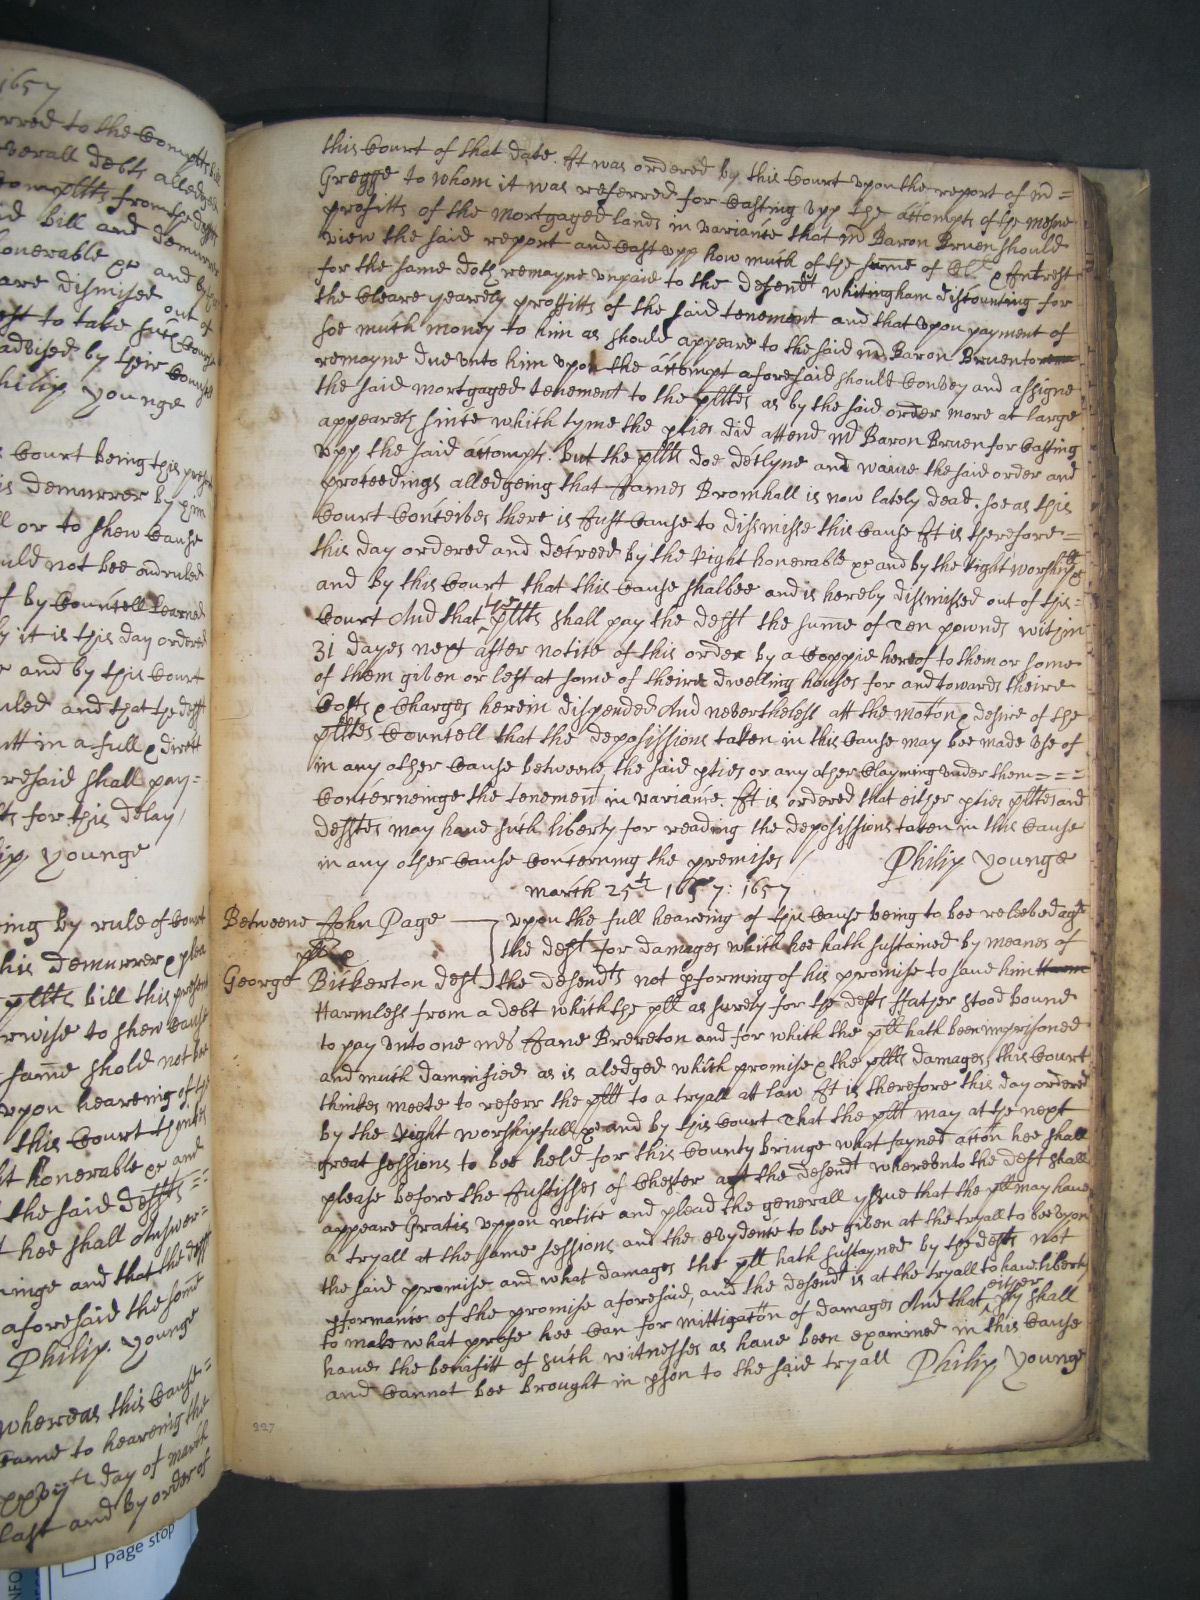 1657
rred to the Compltts bill
verall debts alledged
Compltts from the defts
id bill and demurrer
honerable &c and by
are dismised out of
eft to take such Course
advised by their Councell
hilip Younge
s Court being this present
is demurrer by him
ll or to shew Cause
uld not bee ovrruled
f by Councell learned
y it is this day ordered
e and by this Court
uled and that the defft
utt in a full & direct
resaid shall pay =
ts for this delay
ip Younge
ing by rule of Court
his demurrer & plea
pltts bill this present
rwise to shew Cause
same shold not bee
vpon heareing of the
this Court thinkes
ht honerable &c and
the said deffts =
t hee shall Answer =
inge and that the defft
aforesaid the some
Philip Younge
whereas this Cause =
Came to heareing the
xxvjth day of march
last and by order of
page stop
this Court of that date. It was ordered by this Court vpon the report of Mr =
Gregge to whom it was referred for Casting vpp the Accompts of the mesne
profitts of the Mortgaged lands in variance that Mr Baron Bruen should
view the said report and Cast vpp how much of the sume of Cli & Intrest
for the same doth remayne vnpaid to the defendt Whitingham discounting for
the Cleare yearely proffitts of the said tenement and that vpon payment of
soe much money to him as should appeare to the said Mr Baron Bruen to
remayne due vnto him vpon the accompt aforesaid should Convey and assigne
the said mortgaged tenement to the pltttes as by the said order more at large
appeareth since which tyme the pties did attend Mr Baron Bruen for Casting
vpp the said accompt. but the plttt doe declyne and waive the said order and
proceedings alledgeing that James Bromhall is now lately dead. soe as this
Court Conceives there is Just Cause to dissmisse this Cause It is therefore =
this day ordered and decreed by the Right honerable &c and by the Right worshipfll &c
and by this Court that this Cause shalbee and is hereby dissmissed out of this =
Court And that the pltts shall pay the defft the sume of Ten pownds within
31 dayes next after notice of this order by a Coppie hereof to them or some
of them given or left at some of theire dwelling houses for and towards theire
Costs & Charges herein dispended And nevertheless att the motion & desire of the
pltttes Councell that the deposissions taken in this Cause may bee made vse of
in any other Cause betweene the said pties or any other Clayming vnder them = = =
Concerneinge the tenement in variance. It is ordered that either pties pltttes and
defftes may have such liberty for reading the deposissions taken in this Cause
in any other Cause Concerning the premises / Philip Younge
March 25th 1657: 1657
Betweene John Page plt &
George Bickerton deft
vpon the full heareing of this Cause being to bee releeved agt
the deft for damages which hee hath sustained by meanes of
the defendts not pforming of his promise to save him
Harmless from a debt which the plt as surety for the defts ffather stood bound
to pay vnto one Mrs Jane Brereton and for which the plt hath been imprisoned
and much damnified as is aledged which promise & the pltts damages this Court
thinkes meete to referr the pltt to a tryall att law It is therefore this day ordered
by the Right worshipfull &c and by this Court That the pltt may at the next
great sessions to bee held for this County bringe what fayned action hee shall
please before the Justisses of Chester agt the defendt wherevnto the deft shall
appeare gratis vppon notice and plead the generall yssue that the plt may have
a tryall at the same sessions and the evydence to bee given at the tryall to bee vpon
the said promise and what damages the plt hath sustayned by the defts not
pformance of the promise aforesaid, and the defendt is at the tryall to have liberty
to make what profe hee Can for mittigation of damages And that either pty shall
have the benifitt of such witnesses as have been examined in this Cause
and Cannot bee brought in pson to the said tryall Philip Younge
227